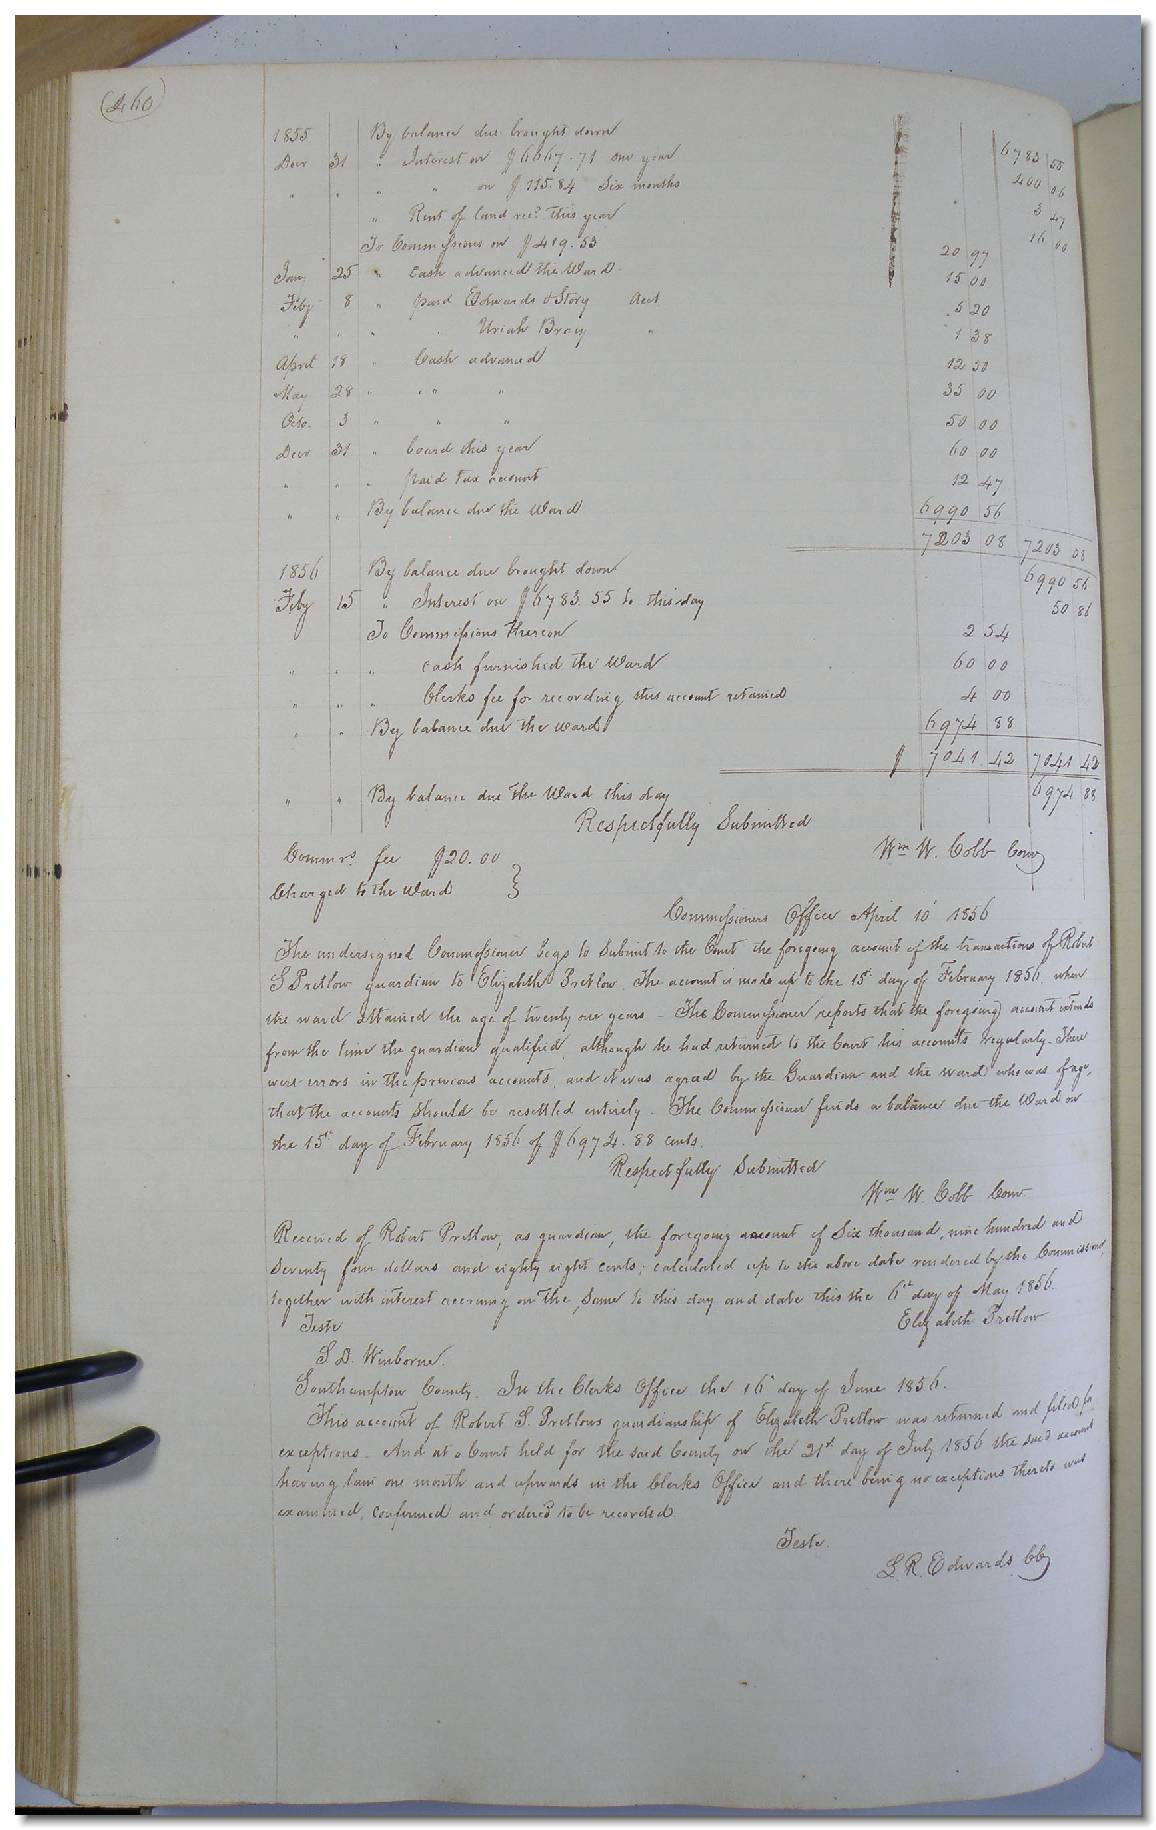 (460)
1855 By balance due brought down 6783 55
Decr 31 " Interest on $6667.71 one year 400 06
" " " " on $115.84 Six months 3 47
" Rent of land recd. this year 16 00
To Commissions on $419.53 20 97
Jany 25 " cash advanced the Ward 15 00
Feby 8 " paid Edwards & Story Acct 5 20
" " " Uriah Bracy " 1 38
April 18 " Cash advanced 12 50
May 28 " " " " 35 00
Octo. 3 " " " 50 00
Decr 31 " board this year 60 00
" " " paid tax account 12 47
" " By balance due the Ward 6990 56
7203 08 7203 08
1856 By balance due brought down 6990 56
Feby 15 " Interest on $6783.55 to this day 50 86
To Commissions thereon 2 54
" " " cash furnished the Ward 60 00
" " " Clerks fee for recording this account retained 4 00
" " By balance due the Ward 6974 88
$ 7041 42 7041 42
" " By balance due the Ward this day 6974 88
Respectfully Submitted
Commrs. fee $20.00 } Wm W. Cobb Comr
Charged to the Ward
Commissioners Office April 10 1856
The undersigned Commissioner begs to Submit to the Court the foregoing account of the transactions of Robert
S Pretlow guardian to Elizabeth Pretlow. The account is made up to the 15th day of February 1856, when
the ward attained the age of twenty one years - The Commissioner reports that the foregoing account extends
from the time the guardian qualified, although he had returned to the Court his accounts regularly. There
were errors in the previous accounts, and it was agreed by the Guardian and the ward who was of age,
that the accounts should be resettled entirely - The Commissioner finds a balance due the Ward on
the 15th day of February 1856 of $6974.88 cents.
Respectfully Submitted
Wm W. Cobb Comr
Received of Robert Pretlow, as guardian, the foregoing amount of Six thousand, nine hundred and
Seventy four dollars and eighty eight cents; calculated up to the above date rendered by the Commissioner,
together with interest accruing on the Same to this day and date this the 6th day of May 1856.
Teste Elizabeth Pretlow
S D. Winborne.
Southampton County. In the Clerks Office the 16th day of June 1856.
This account of Robert S. Pretlows guardianship of Elizabeth Pretlow was returned and filed for
exceptions. And at a Court held for the said County on the 21st day of July 1856 the said account
having lain one month and upwards in the Clerks Office and there being no exceptions thereto was
examined, confirmed and ordered to be recorded.
Teste.
L. R. Edwards